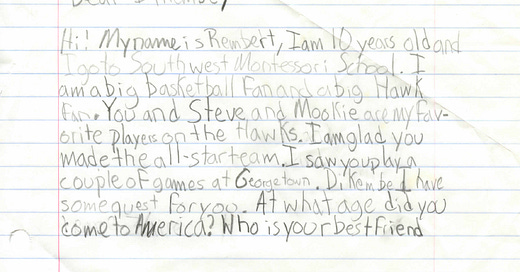 Hi! My name is Rembert, I am 10 years old and
I go to Southwest Montessori School. I
am a big basketball fan and a big Hawk
fan. You and Steve and Mookie are my fav-
orite players on the Hawks. I am glad you
made the all-star team. I saw you play a
couple of games at Georgetown. Dikembe I have
some quest for you. At what age did you
come to America? Who is your best friend